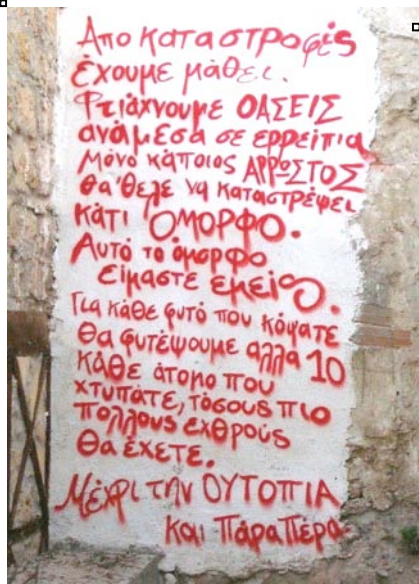 Απο καταστροφές
έχουμε μάθει.
Φτιάχνουμε ΟΑΣΕΙΣ
ανάμεσα σε ερρείπια
Μόνο κάποιος ΑΡΡΩΣΤΟΣ
θα 'θελε να καταστρέψει
κάτι ΟΜΟΡΦΟ.
Αυτό το όμορφο
Είμαστε εμείς.
Για κάθε φυτό που κόψατε
Θα φυτέψουμε αλλα 10
Κάθε άτομο που
χτυπάτε, τόσους πιο
πολλους εχθρούς
Θα έχετε.
Μέχρι την ΟΥΤΟΠΙΑ
και Πάρα Πέρα